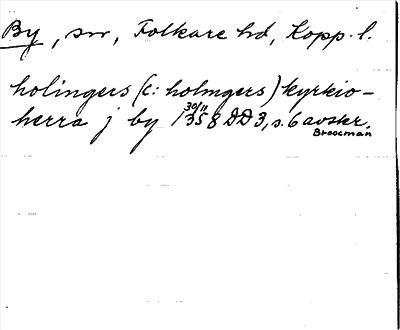 By, sn, Folkare hd, Kopp. l.
holingers (c: holmgers) kyrkio-
herra j by 30/11 1358 DD 3, s. 6 avskr.
Broocman